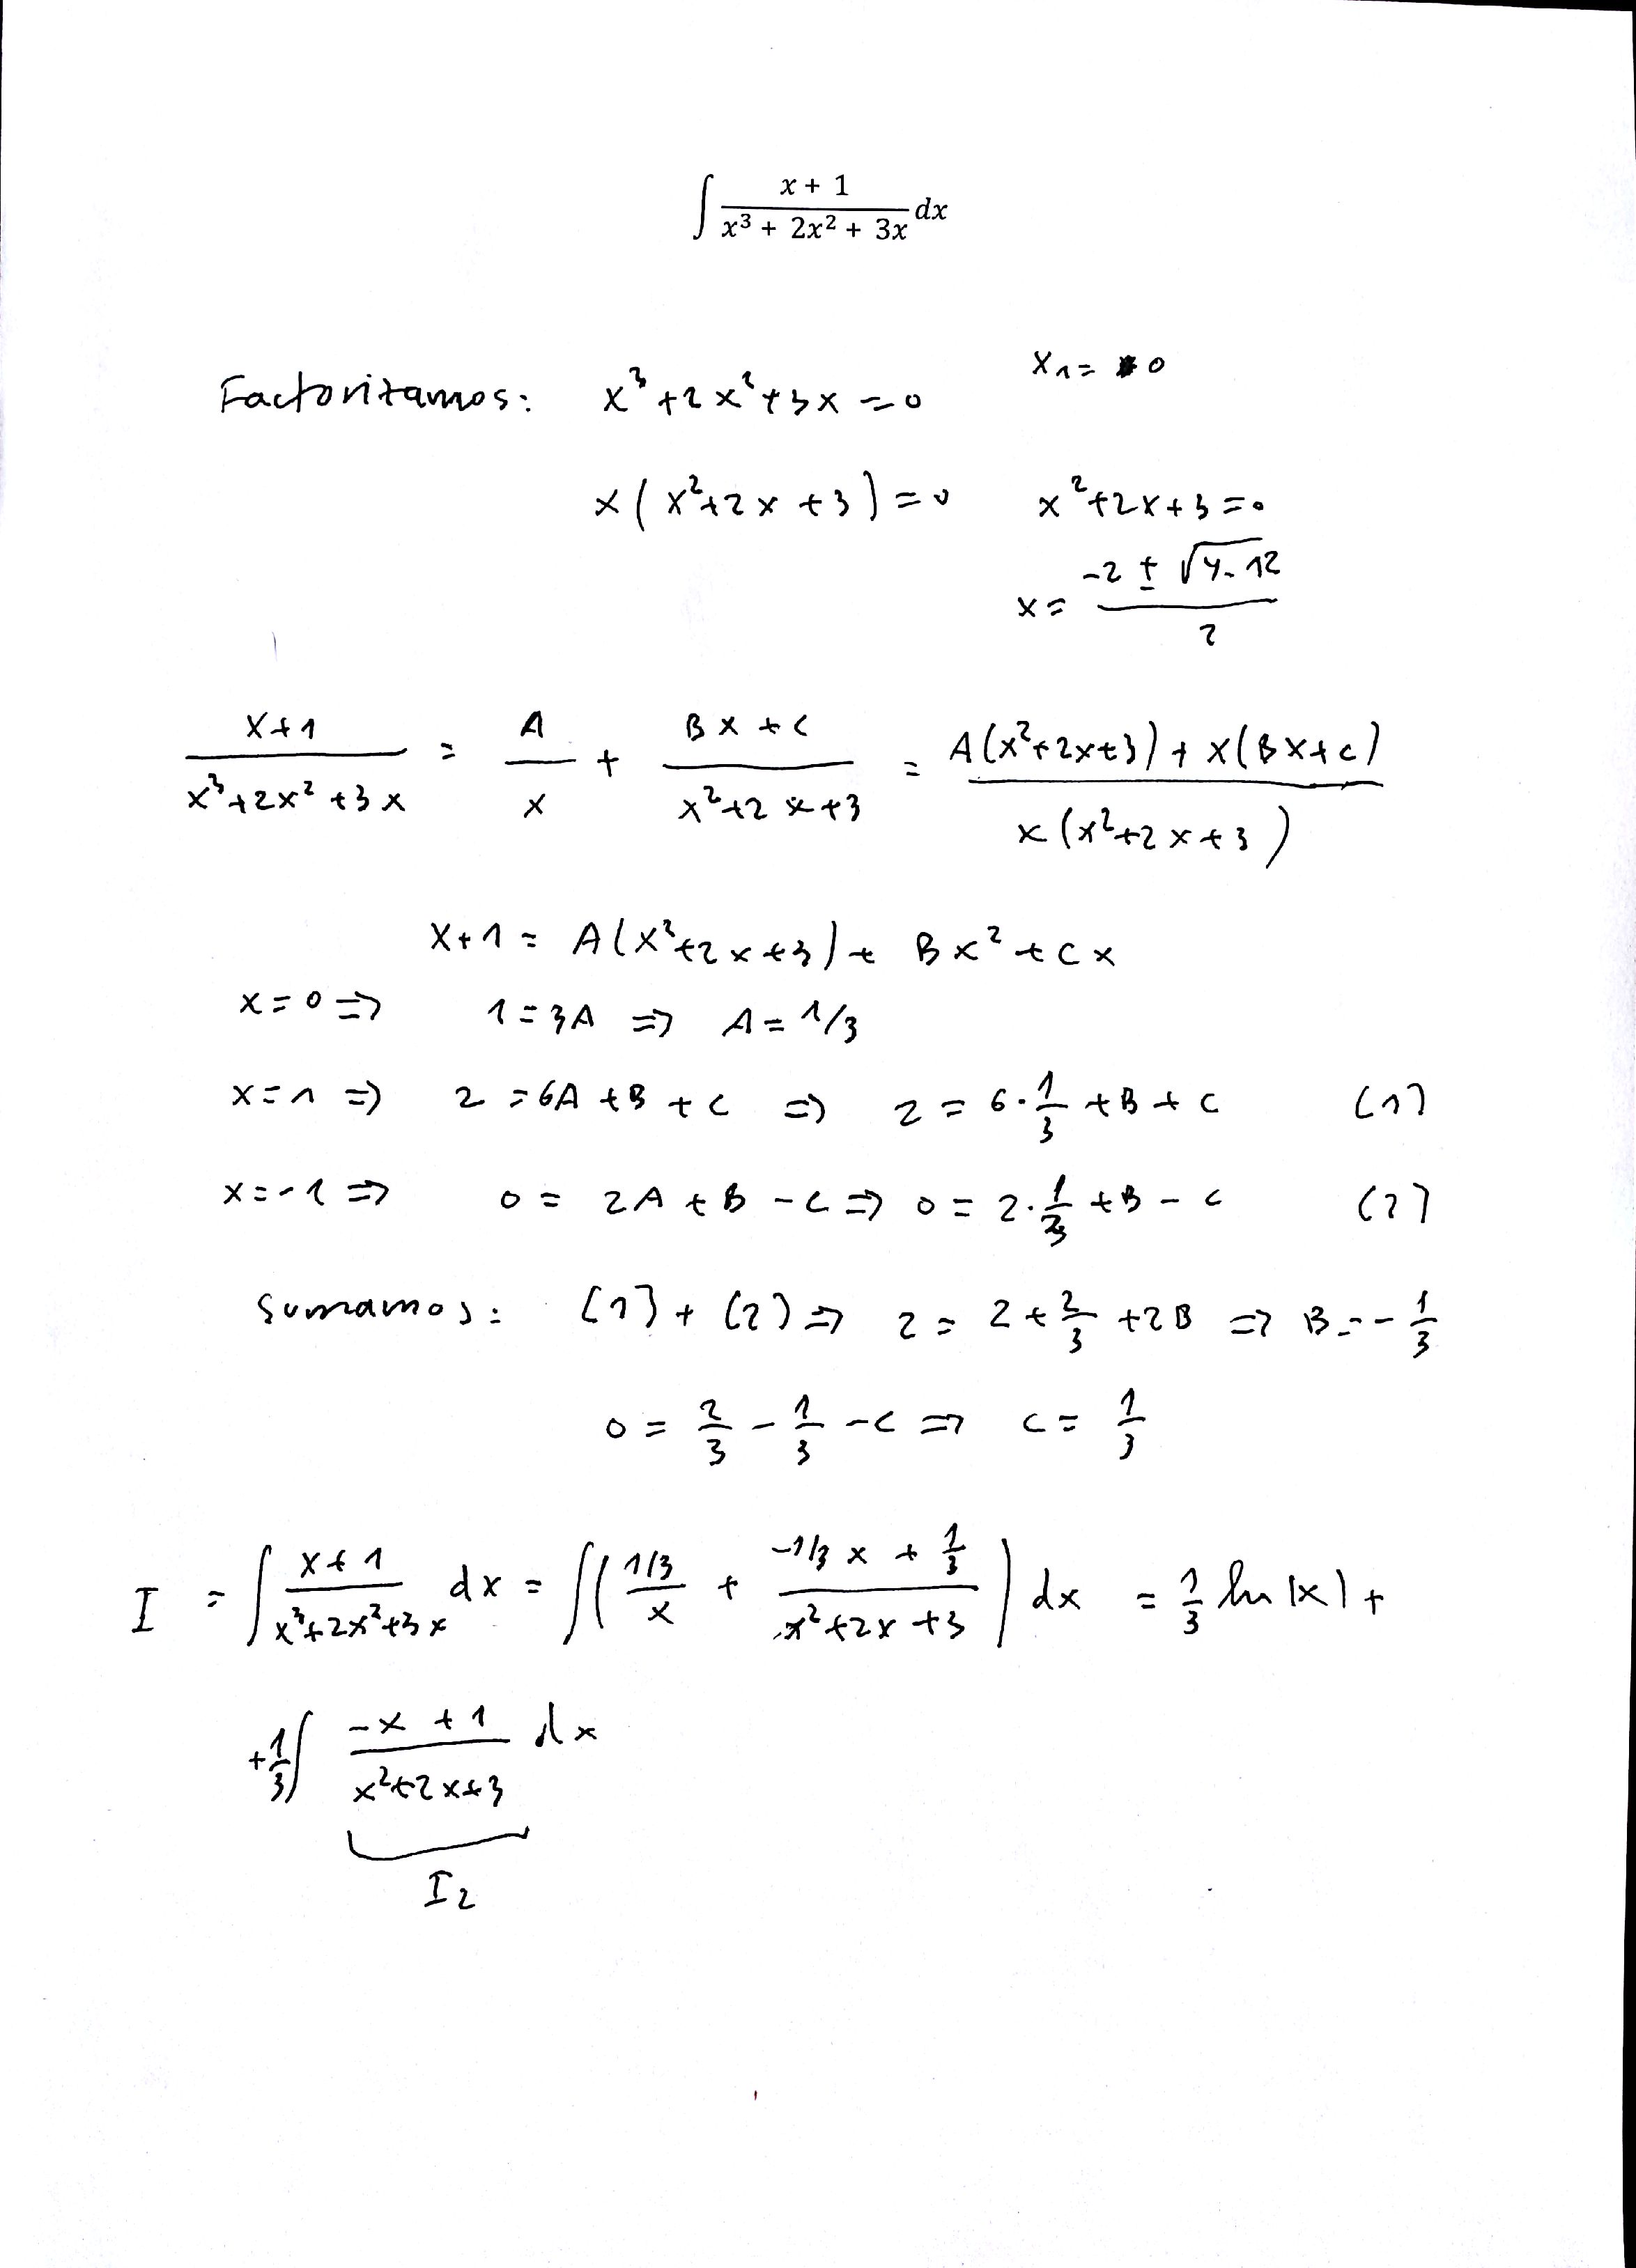 ∫ (x + 1)/(x³ + 2x² + 3x) dx
x₁ = 0
Factorizamos: x³ + 2x² + 3x = 0
x(x² + 2x + 3) = 0 x² + 2x + 3 = 0
x = (-2 ± √(4 - 12))/2
(x + 1)/(x³ + 2x² + 3x) = A/x + (Bx + C)/(x² + 2x + 3) = (A(x² + 2x + 3) + x(Bx + C))/(x(x² + 2x + 3))
x + 1 = A(x² + 2x + 3) + Bx² + Cx
x = 0 ⇒ 1 = 3A ⇒ A = 1/3
x = 1 ⇒ 2 = 6A + B + C ⇒ 2 = 6 · 1/3 + B + C (1)
x = -1 ⇒ 0 = 2A + B - C ⇒ 0 = 2 · 1/3 + B - C (2)
Sumamos: (1) + (2) ⇒ 2 = 2 + 2/3 + 2B ⇒ B = -1/3
0 = 2/3 - 1/3 - C ⇒ C = 1/3
I = ∫ (x + 1)/(x³ + 2x² + 3x) dx = ∫ ((1/3)/x + (-1/3 x + 1/3)/(x² + 2x + 3)) dx = 1/3 ln|x| +
+ 1/3 ∫ (-x + 1)/(x² + 2x + 3) dx
I₂